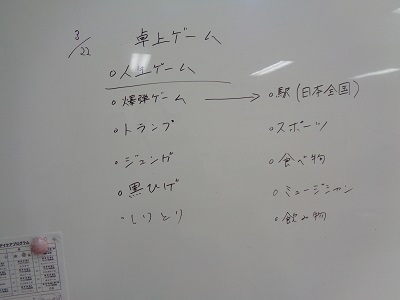 3/22
卓上ゲーム
○人生ゲーム
○爆弾ゲーム → ○駅(日本全国)
○トランプ ○スポーツ
○ジェンガ ○食べ物
○黒ひげ ○ミュージシャン
○しりとり ○飲み物